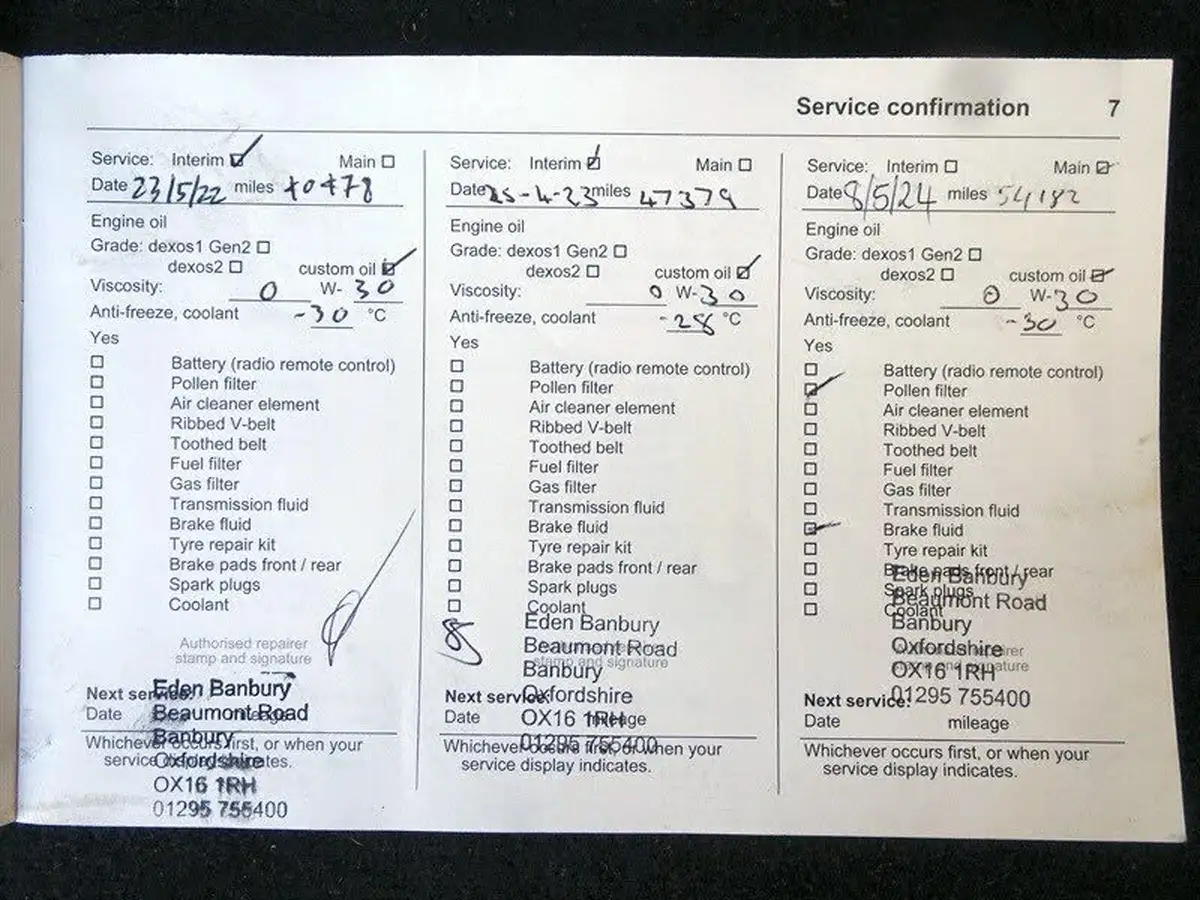 Service confirmation 7
Service: Interim Main
Date 23/5/22 miles 40478
Engine oil
Grade: dexos1 Gen2
dexos2 custom oil
Viscosity: 0 W- 30
Anti-freeze, coolant -30 °C
Yes
Battery (radio remote control)
Pollen filter
Air cleaner element
Ribbed V-belt
Toothed belt
Fuel filter
Gas filter
Transmission fluid
Brake fluid
Tyre repair kit
Brake pads front / rear
Spark plugs
Coolant
Authorised repairer
stamp and signature
Eden Banbury
Next service:
Beaumont Road
Date mileage
Banbury
Whichever occurs first, or when your
Oxfordshire
service display indicates.
OX16 1RH
01295 755400
Service: Interim Main
Date 25-4-23 miles 47379
Engine oil
Grade: dexos1 Gen2
dexos2 custom oil
Viscosity: 0 W-30
Anti-freeze, coolant -28 °C
Yes
Battery (radio remote control)
Pollen filter
Air cleaner element
Ribbed V-belt
Toothed belt
Fuel filter
Gas filter
Transmission fluid
Brake fluid
Tyre repair kit
Brake pads front / rear
Spark plugs
Coolant
Eden Banbury
Beaumont Road
stamp and signature
Banbury
Next service:
Oxfordshire
Date mileage
OX16 1RH
01295 755400
Whichever occurs first, or when your
service display indicates.
Service: Interim Main
Date 8/5/24 miles 54182
Engine oil
Grade: dexos1 Gen2
dexos2 custom oil
Viscosity: 0 W-30
Anti-freeze, coolant -30 °C
Yes
Battery (radio remote control)
Pollen filter
Air cleaner element
Ribbed V-belt
Toothed belt
Fuel filter
Gas filter
Transmission fluid
Brake fluid
Tyre repair kit
Brake pads front / rear
Eden Banbury
Spark plugs
Beaumont Road
Coolant
Banbury
Oxfordshire
stamp and signature
OX16 1RH
Next service:
01295 755400
Date mileage
Whichever occurs first, or when your
service display indicates.